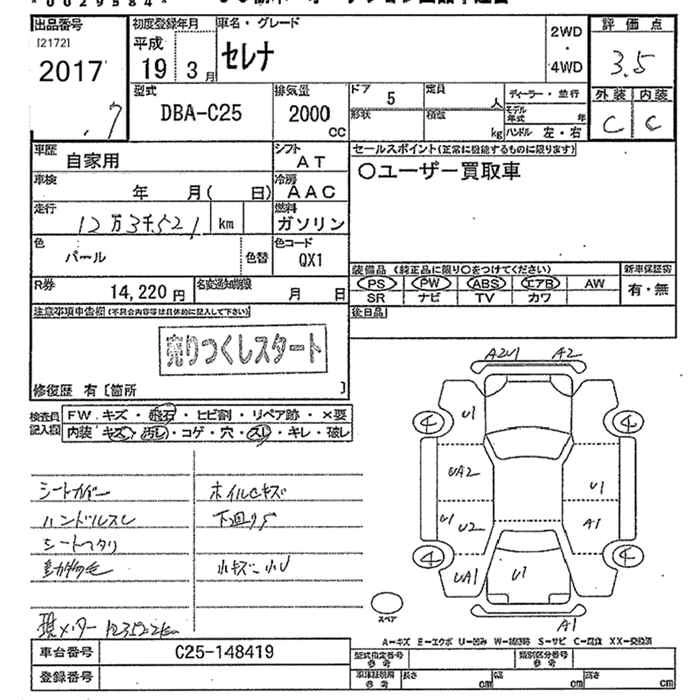 *0029584*
出品番号
[2172]
2017
.7
初度登録年月
平成
19年3月
車名・グレード
セレナ
2WD
・
4WD
評価点
3.5
外装 内装
C C
型式
DBA-C25
排気量
2000
CC
ドア 5
形状
定員 人
積載 kg
ディーラー・並行
モデル年式 年
ハンドル 左・右
車歴 自家用
シフト
AT
車検 年 月( 日)
冷房
AAC
走行 12万3千521 km
燃料
ガソリン
色 パール 色替
色コード
QX1
R券 14,220円
名変通知期限 月 日
セールスポイント(正常に機能するものに限ります)
○ユーザー買取車
装備品(純正品に限り○をつけてください)
PS PW ABS エアB AW
SR ナビ TV カワ
新車保証書
有・無
後日品
注意事項申告欄(不具合内容等は具体的に記入して下さい)
売りつくしスタート
修復歴 有[箇所 ]
検査員記入欄
FW キズ・飛石・ヒビ割・リペア跡・×要
内装 キズ・汚れ・コゲ・穴・スレ・キレ・破レ
シートカバー
ハンドルスレ
シートヘタリ
動物毛
ホイルCキズ
下回りS
小キズ小U
現メーター123522km
A2U1 A2
U1
4 4
UA2
U1
U1 U2
A1
4 4
UA1
U1
A1
スペア
A-キズ E-エクボ U-凹み W-補修跡 S-サビ C-腐食 XX-交換済
車台番号 C25-148419
登録番号
型式指定番号 参考
類別区分番号 参考
車体証明用 参考
長さ cm
幅 cm
高さ cm